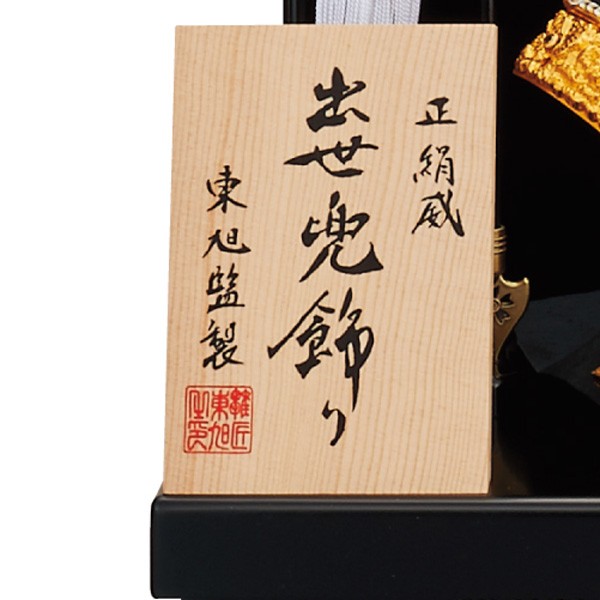 正絹威
出世兜飾り
東旭監製
雛匠
東旭
之印